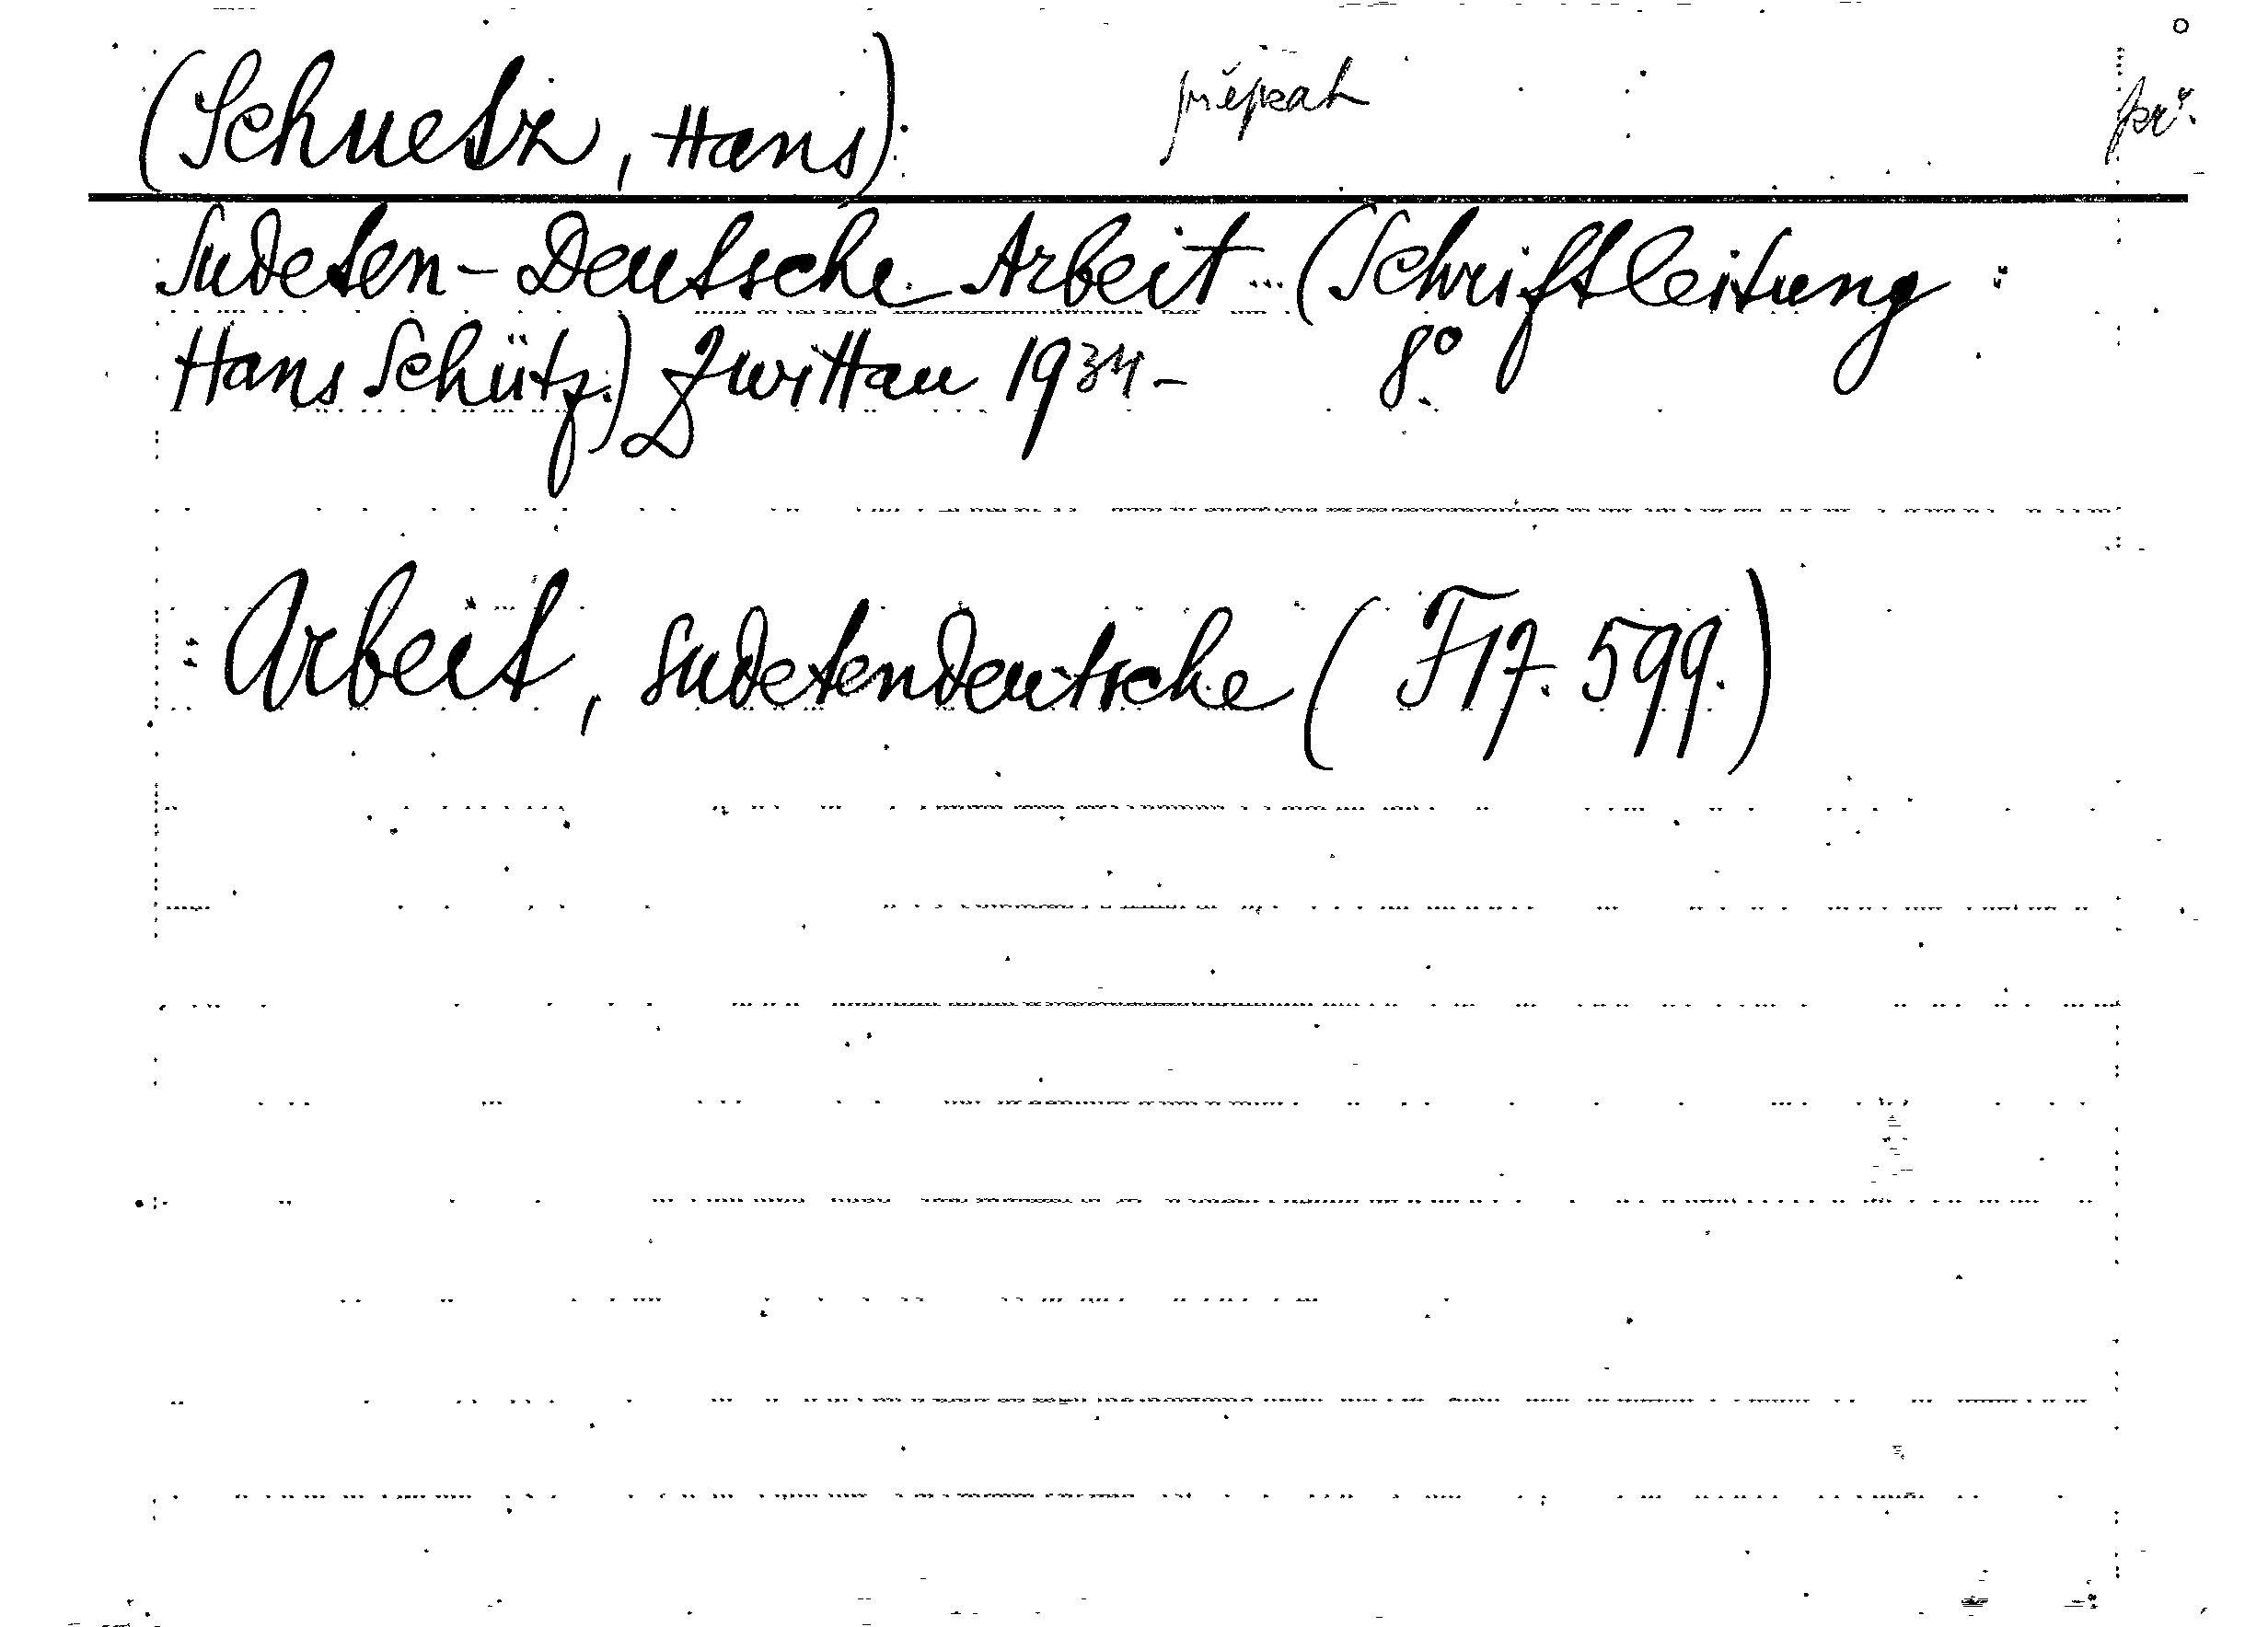 (Schuetz, Hans):
Sudeten-Deutsche Arbeit...(Schriftleitung:
Hans Schütz.) Zwittau 1934- 8°.
: Arbeit, sudetendeutsche (F17.599.)